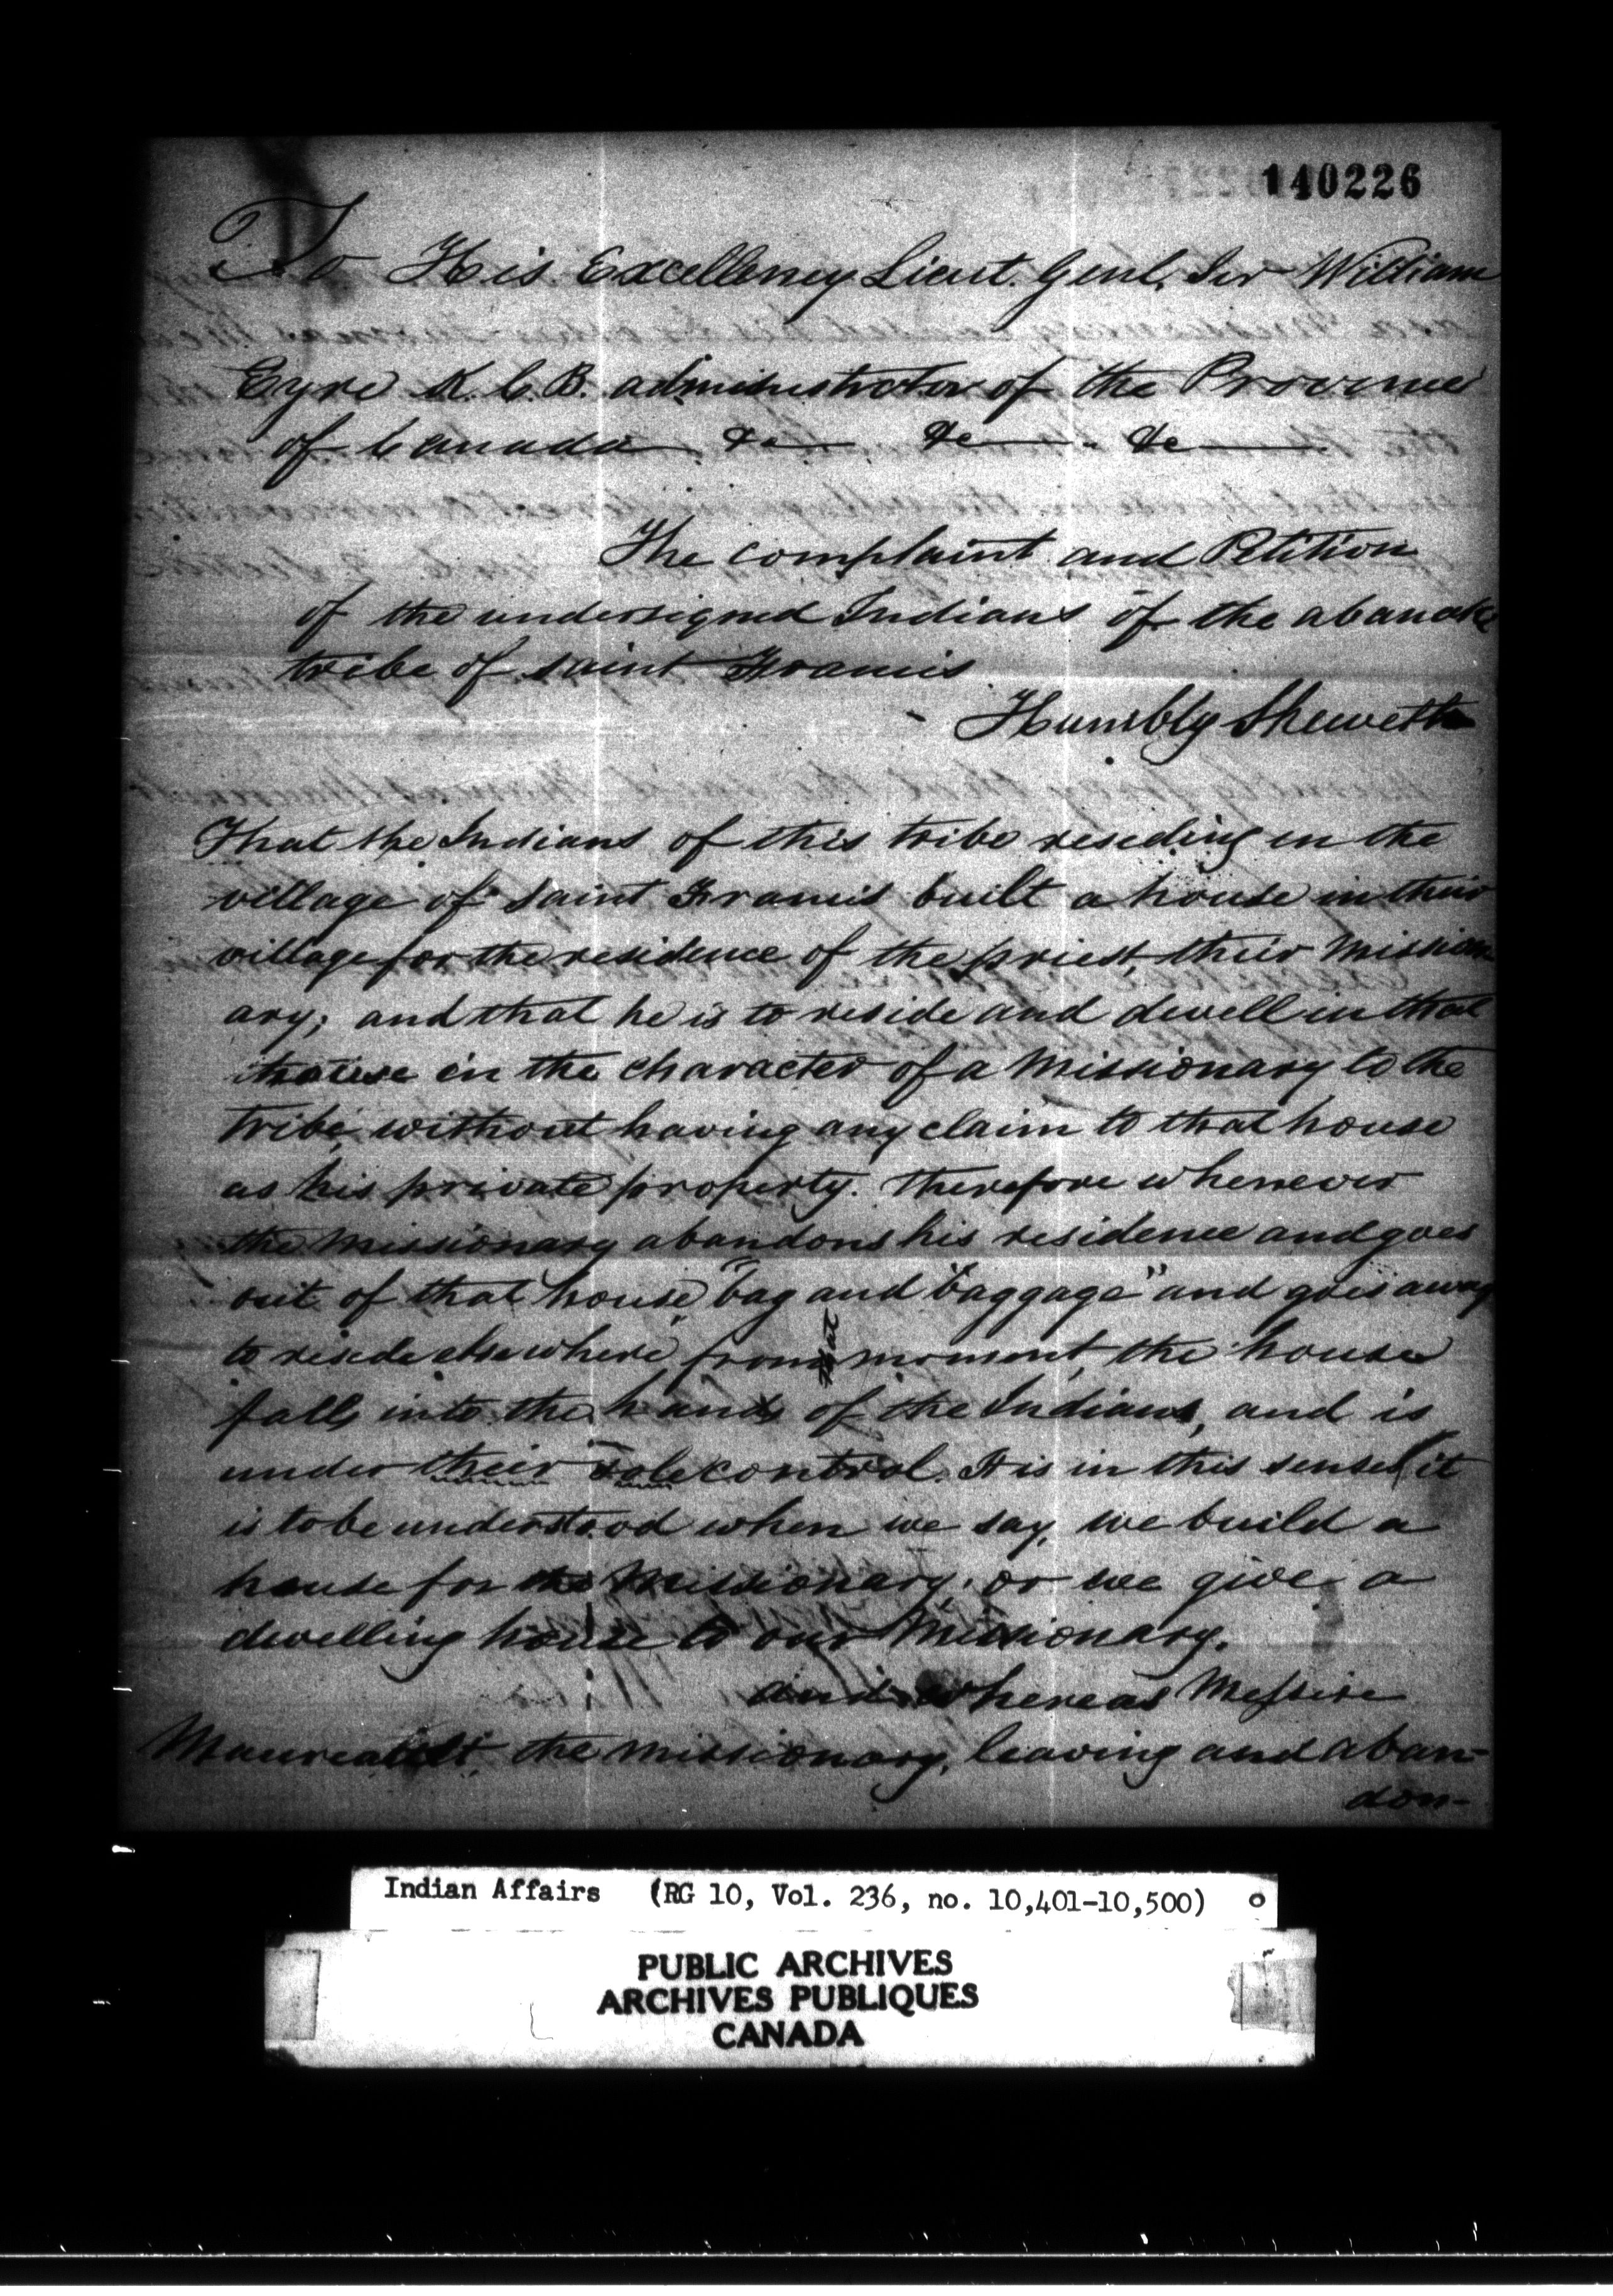 140226
To His Excellency Lieut. Genl, Sir William
Eyre K. C. B. administrator of the Province
of Canada &c &c &c
The complaint and Petition
of the undersigned Indians of the abanake
tribe of saint Francis
Humbly Sheweth
That the Indians of this tribe reseding in the
village of saint Francis built a house in their
village for the residence of the priest, their mission
ary; and that he is to reside and dwell in that
house in the character of a missionary to the
tribe, without having any claim to that house
as his private property. therefore whenever
the missionary abandons his residence and goes
out of that house "bag and baggage" and goes away
to reside elsewhere, from that moment, the house
falls into the hands of the Indians, and is
under their sole control. It is in this sense (it
is to be understood when we say, we build a
house for the missionary, or we give a
dwelling house to our Missionary.
and whereas Messire
Maureault the missionary, leaving and aban-
don-
Indian Affairs (RG 10, Vol. 236, no. 10,401-10,500)
PUBLIC ARCHIVES
ARCHIVES PUBLIQUES
CANADA